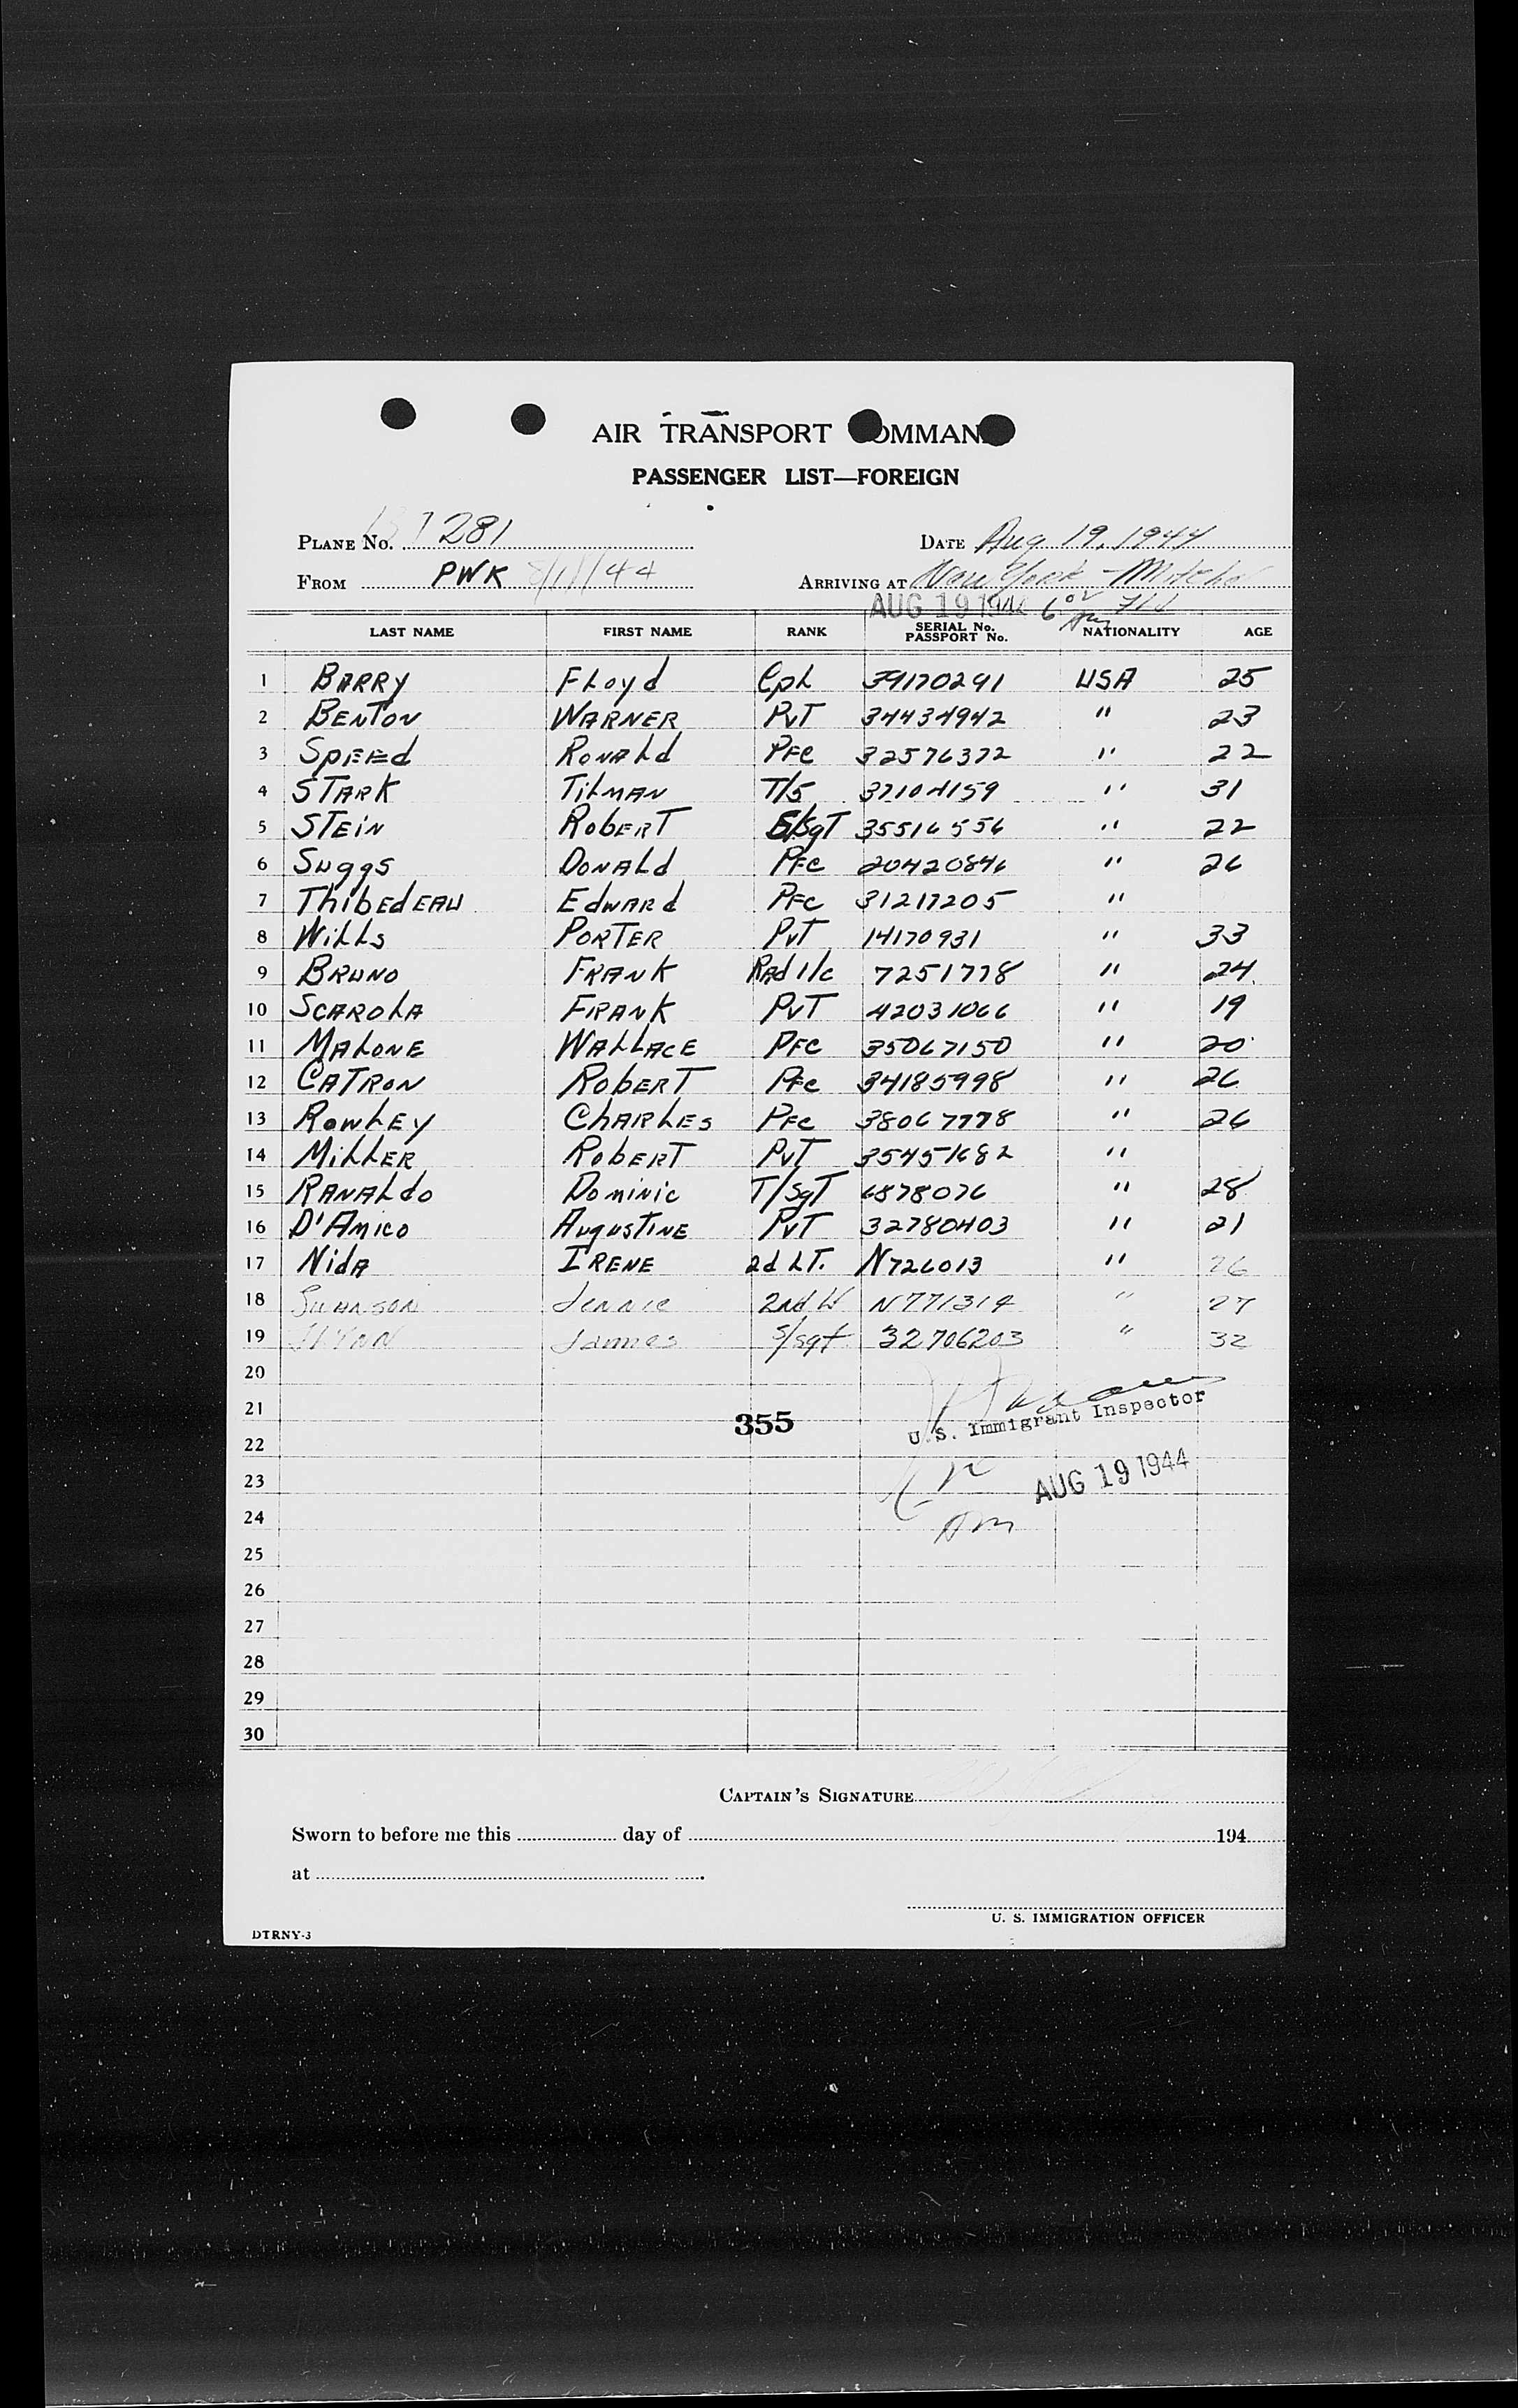 AIR TRANSPORT COMMAND
PASSENGER LIST—FOREIGN
PLANE No. 7281 DATE Aug 19, 1944
FROM PWK 8/18/44 ARRIVING AT New York - Mitchel
AUG 19 1944 6 02 Am Fld
LAST NAME FIRST NAME RANK SERIAL No. PASSPORT No. NATIONALITY AGE
1 BARRY FLoyd Cpl 39170291 USA 25
2 BENTON WARNER PvT 34434942 " 23
3 SPEEd RONALd PFC 32576372 " 22
4 STARK TiLMAN T/5 37104159 " 31
5 STEiN RobERT S/SgT 35516556 " 22
6 Suggs DONALd PFC 20420846 " 26
7 ThibEdEAU EdwARd PFC 31217205 "
8 WiLLs PORTER PvT 14170931 " 33
9 BRUNO FRANK RAd 1/c 7251778 " 24
10 SCAROLA FRANK PvT 42031066 " 19
11 MALONE WALLACE PFC 35067150 " 20
12 CATRON RobERT PFC 34185998 " 26
13 RowLEy ChARLEs PFC 38067778 " 26
14 MiLLER RobERT PvT 35451682 "
15 RANALdo DOMiNiC T/SgT 6878076 " 28
16 D'AMICO AugusTINE PvT 32780403 " 21
17 NidA IRENE 2d LT. N726013 " 26
18 Swanson Jennie 2nd Lt N771314 " 27
19 James S/Sgt 32706203 " 32
20
21
22
23
24
25
26
27
28
29
30
355
U.S. Immigrant Inspector
AUG 19 1944
Am
CAPTAIN'S SIGNATURE
Sworn to before me this day of 194
at
U. S. IMMIGRATION OFFICER
DTRNY-3